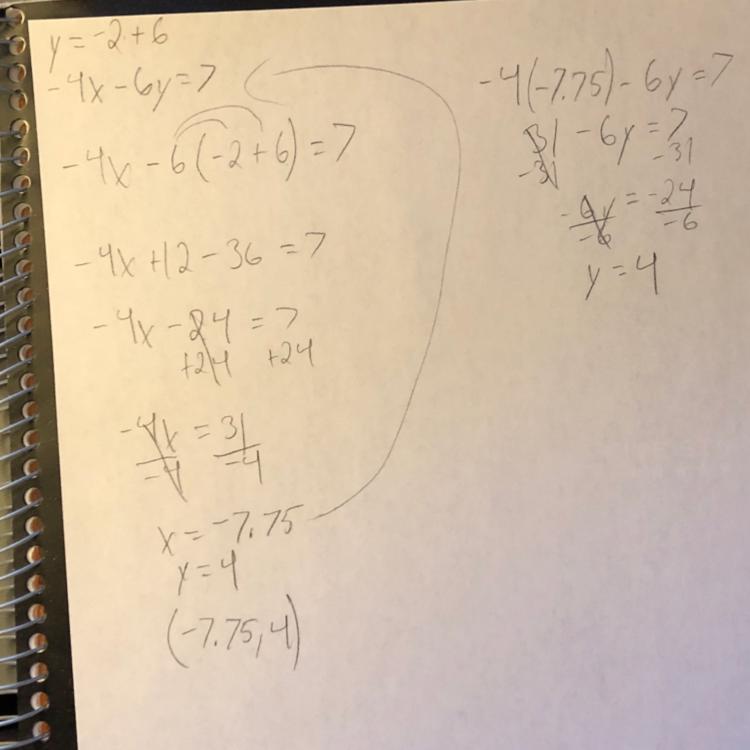 y = -2 + 6
-4x - 6y = 7
-4x - 6(-2 + 6) = 7
-4x + 12 - 36 = 7
-4x - 24 = 7
+24 +24
-4x = 31
-4 -4
x = -7.75
y = 4
(-7.75, 4)
-4(-7.75) - 6y = 7
31 - 6y = 7
-31 -31
-6y = -24
-6 -6
y = 4